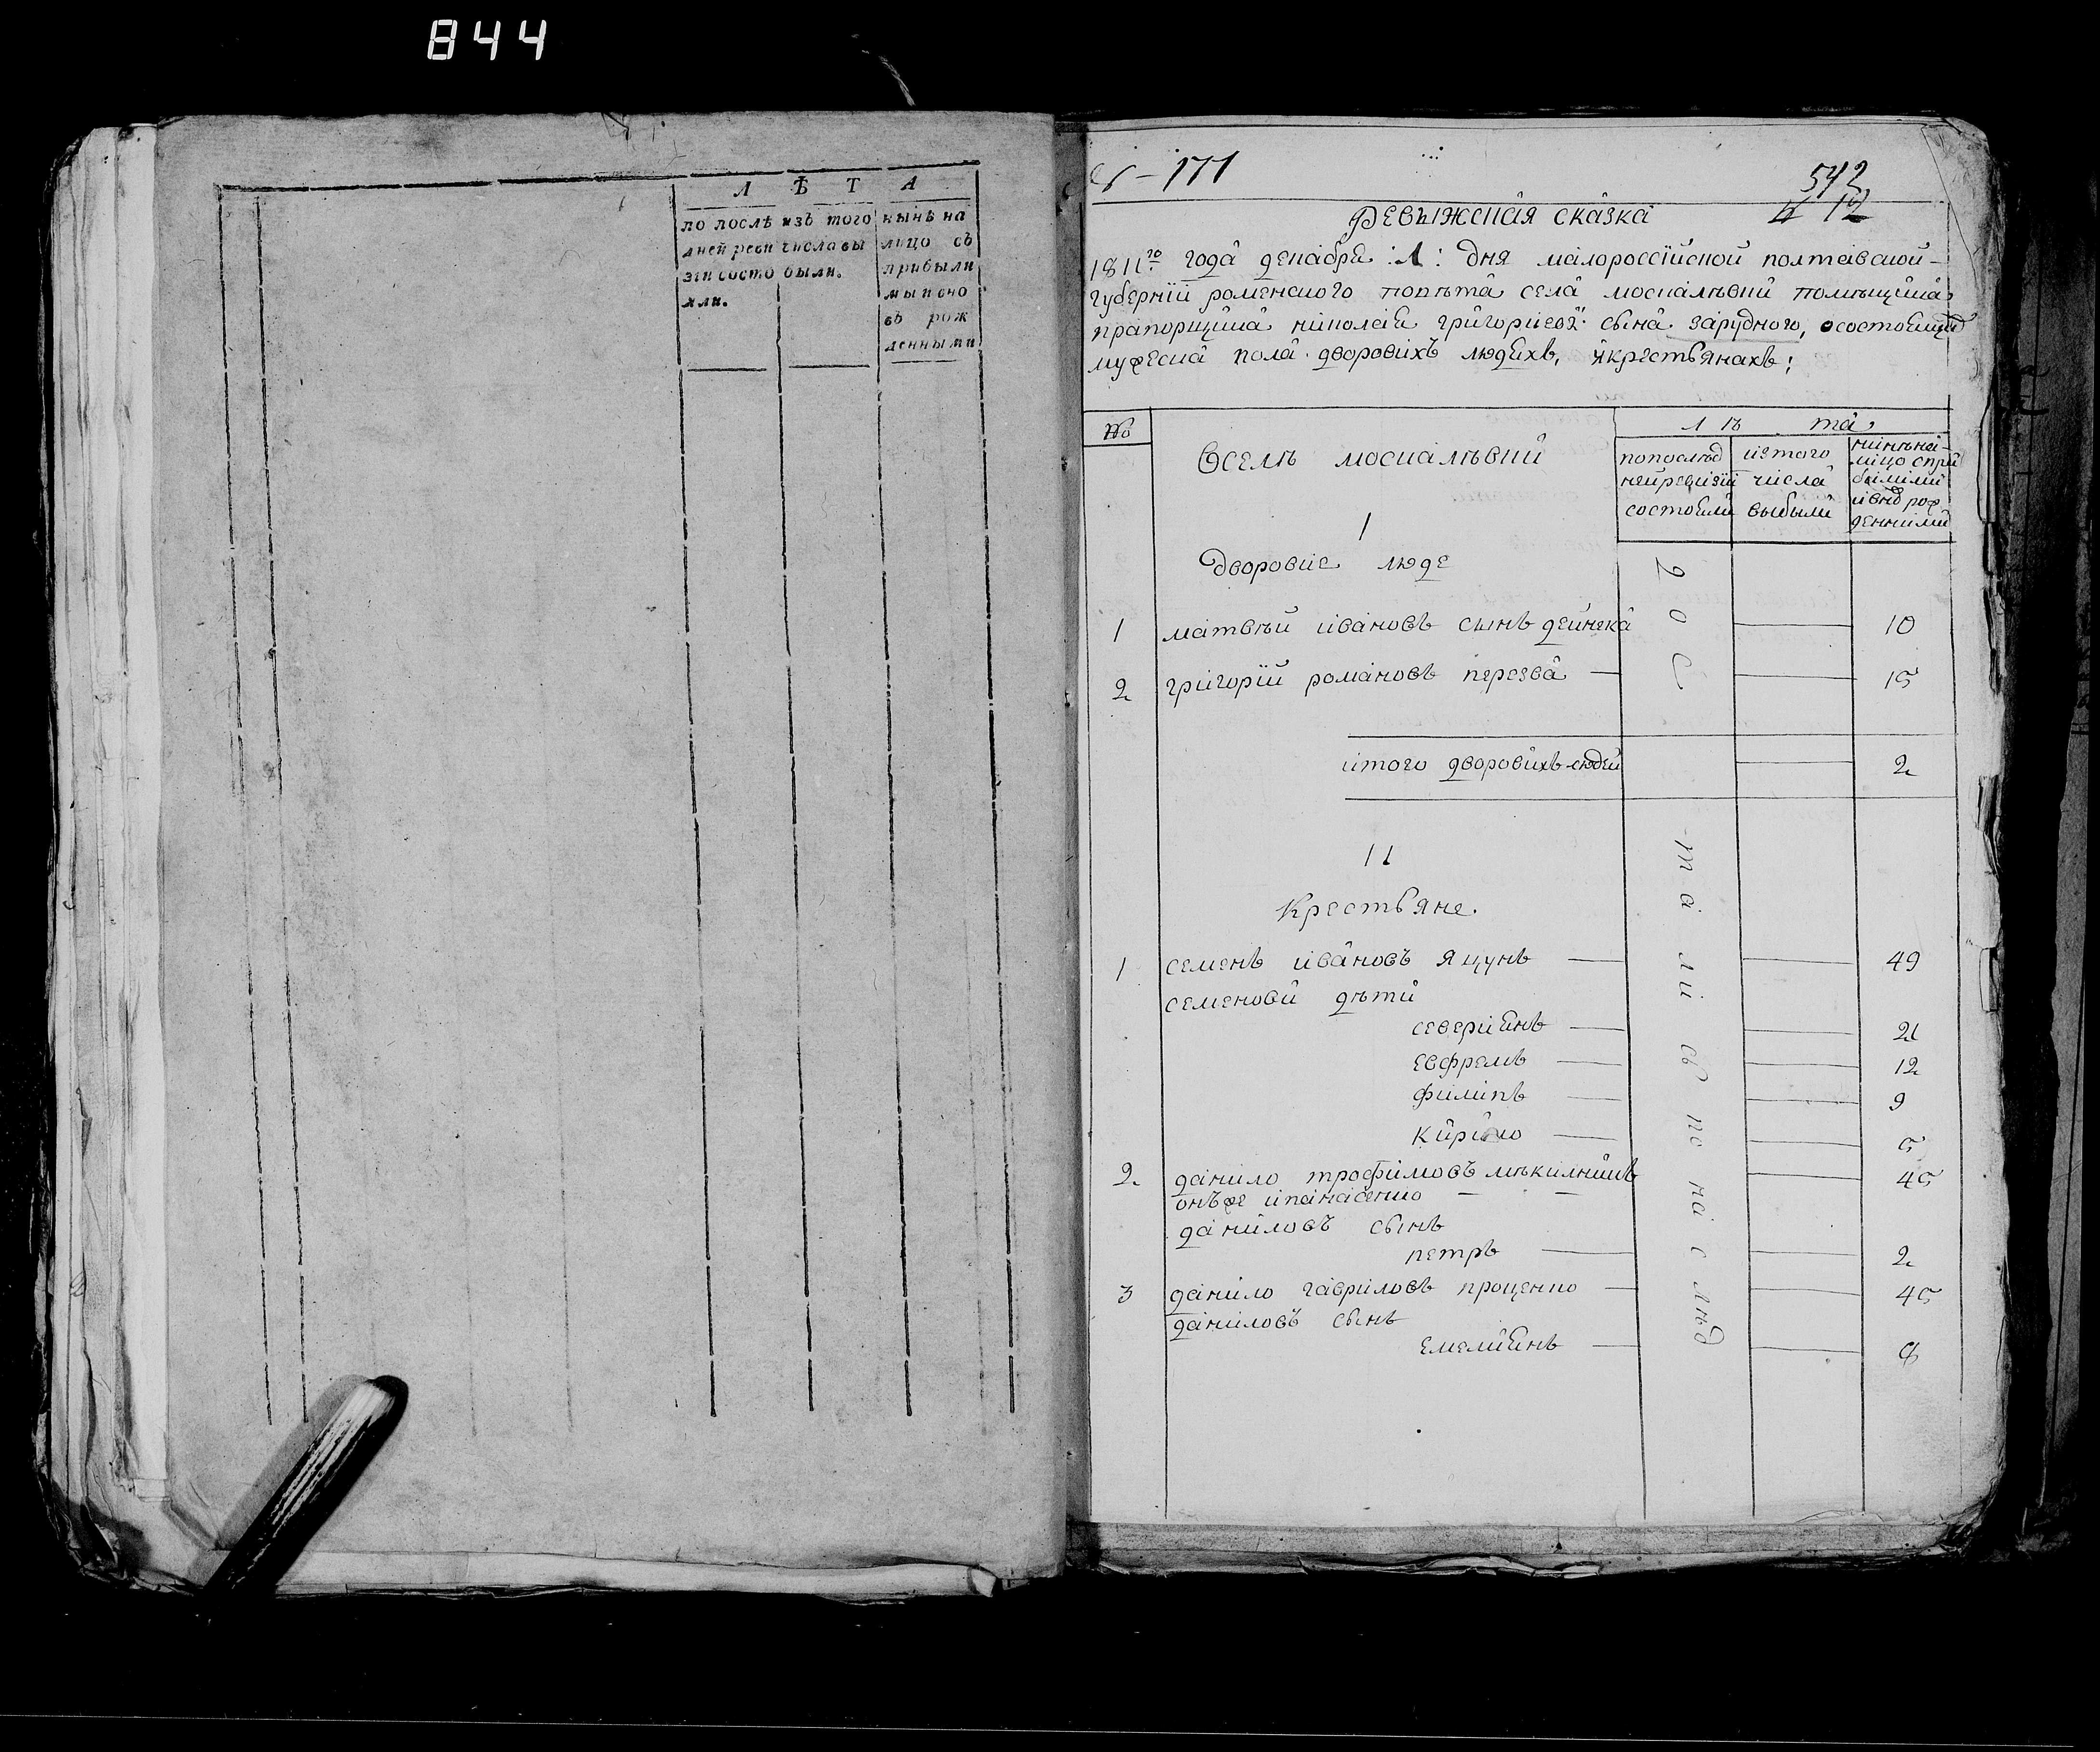 844
Л Ѣ Т А
по послѣ
дней реви
зеи состо
яли.
изъ того
числа вы
были.
нынѣ на
лицо съ
прибыли
ми и сно
въ рож
денными
177
542
12
Ревыжская сказка
1811го года декабря :Л: дня малороссїйской полтавской
губернїи роменского повѣта села москалѣвки помѣщика
прапорщика николая григориева сына зарудного, о состоящих
мужеска пола дворовихъ людяхъ, и крестьянахъ;
№
Лѣта
Оселѣ москалѣвки
попослѣд
нейревизїи
состояли
изтого
числа
выбыли
нинѣна
лицо спри
билими
ивнов рож
денними
1
Дворовие люде
1 матвѣй ивановъ сынъ дейнека 10
2 григорїй романовъ перезва 15
итого дворовихъ людей 2
11
Крестьяне.
1 семенъ ивановъ яцунъ 49
семенови дѣти
севериянъ 21
евфремъ 12
филипъ 9
Кирило 5
2. данило трофимовъ 45
онъже ипанасенко
даниловъ сынъ
петръ 2
3 данило гавриловъ проценко 45
даниловъ сынъ
емелиянъ 8
достались по наслѣд